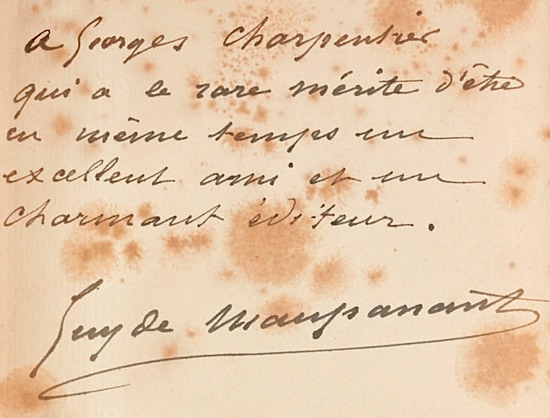 A Georges Charpentier
qui a le rare mérite d'être
en même temps un
excellent ami et un
charmant éditeur.
Guy de Maupassant